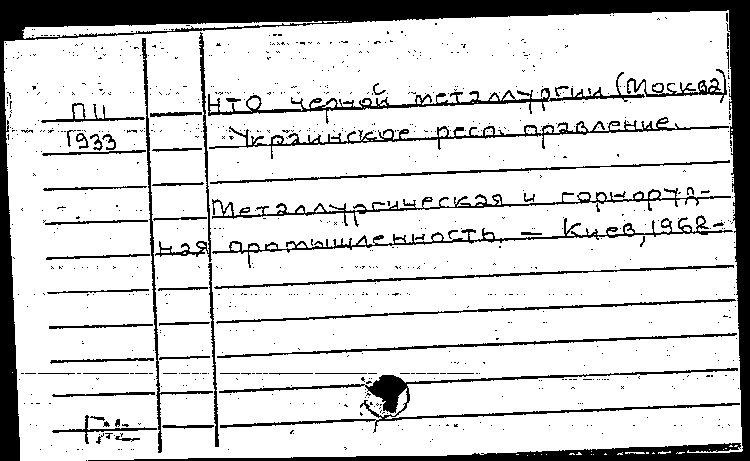 ПII НТО черной металлургии (Москва)
1933 Украинское респ. правление.
Металлургическая и горноруд-
ная промышленность. — Киев, 1968-